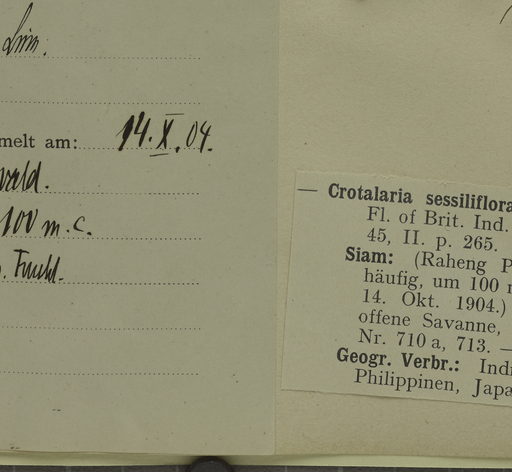 Linn.
melt am: 14.X.04.
wald.
100 m. c.
Crotalaria sessiliflora
Fl. of Brit. Ind.
45, II. p. 265.
Siam: (Raheng P
häufig, um 100 m
14. Okt. 1904.)
offene Savanne,
Nr. 710 a, 713. —
Geogr. Verbr.: Indi
Philippinen, Japa